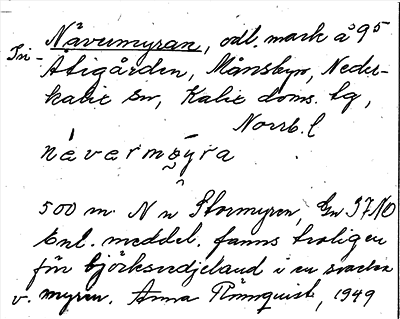 Nävermyran, odl. mark å 9⁵
Åbigården, Månsbyn, Neder-
kalix sn, Kalix doms. lg,
Norrb. l
500 m N n Stormyren, Gn 37 NO
Enl. meddel. fanns troligen
för björksvedjeland i en
v. myren. Anna Rönnquist, 1949